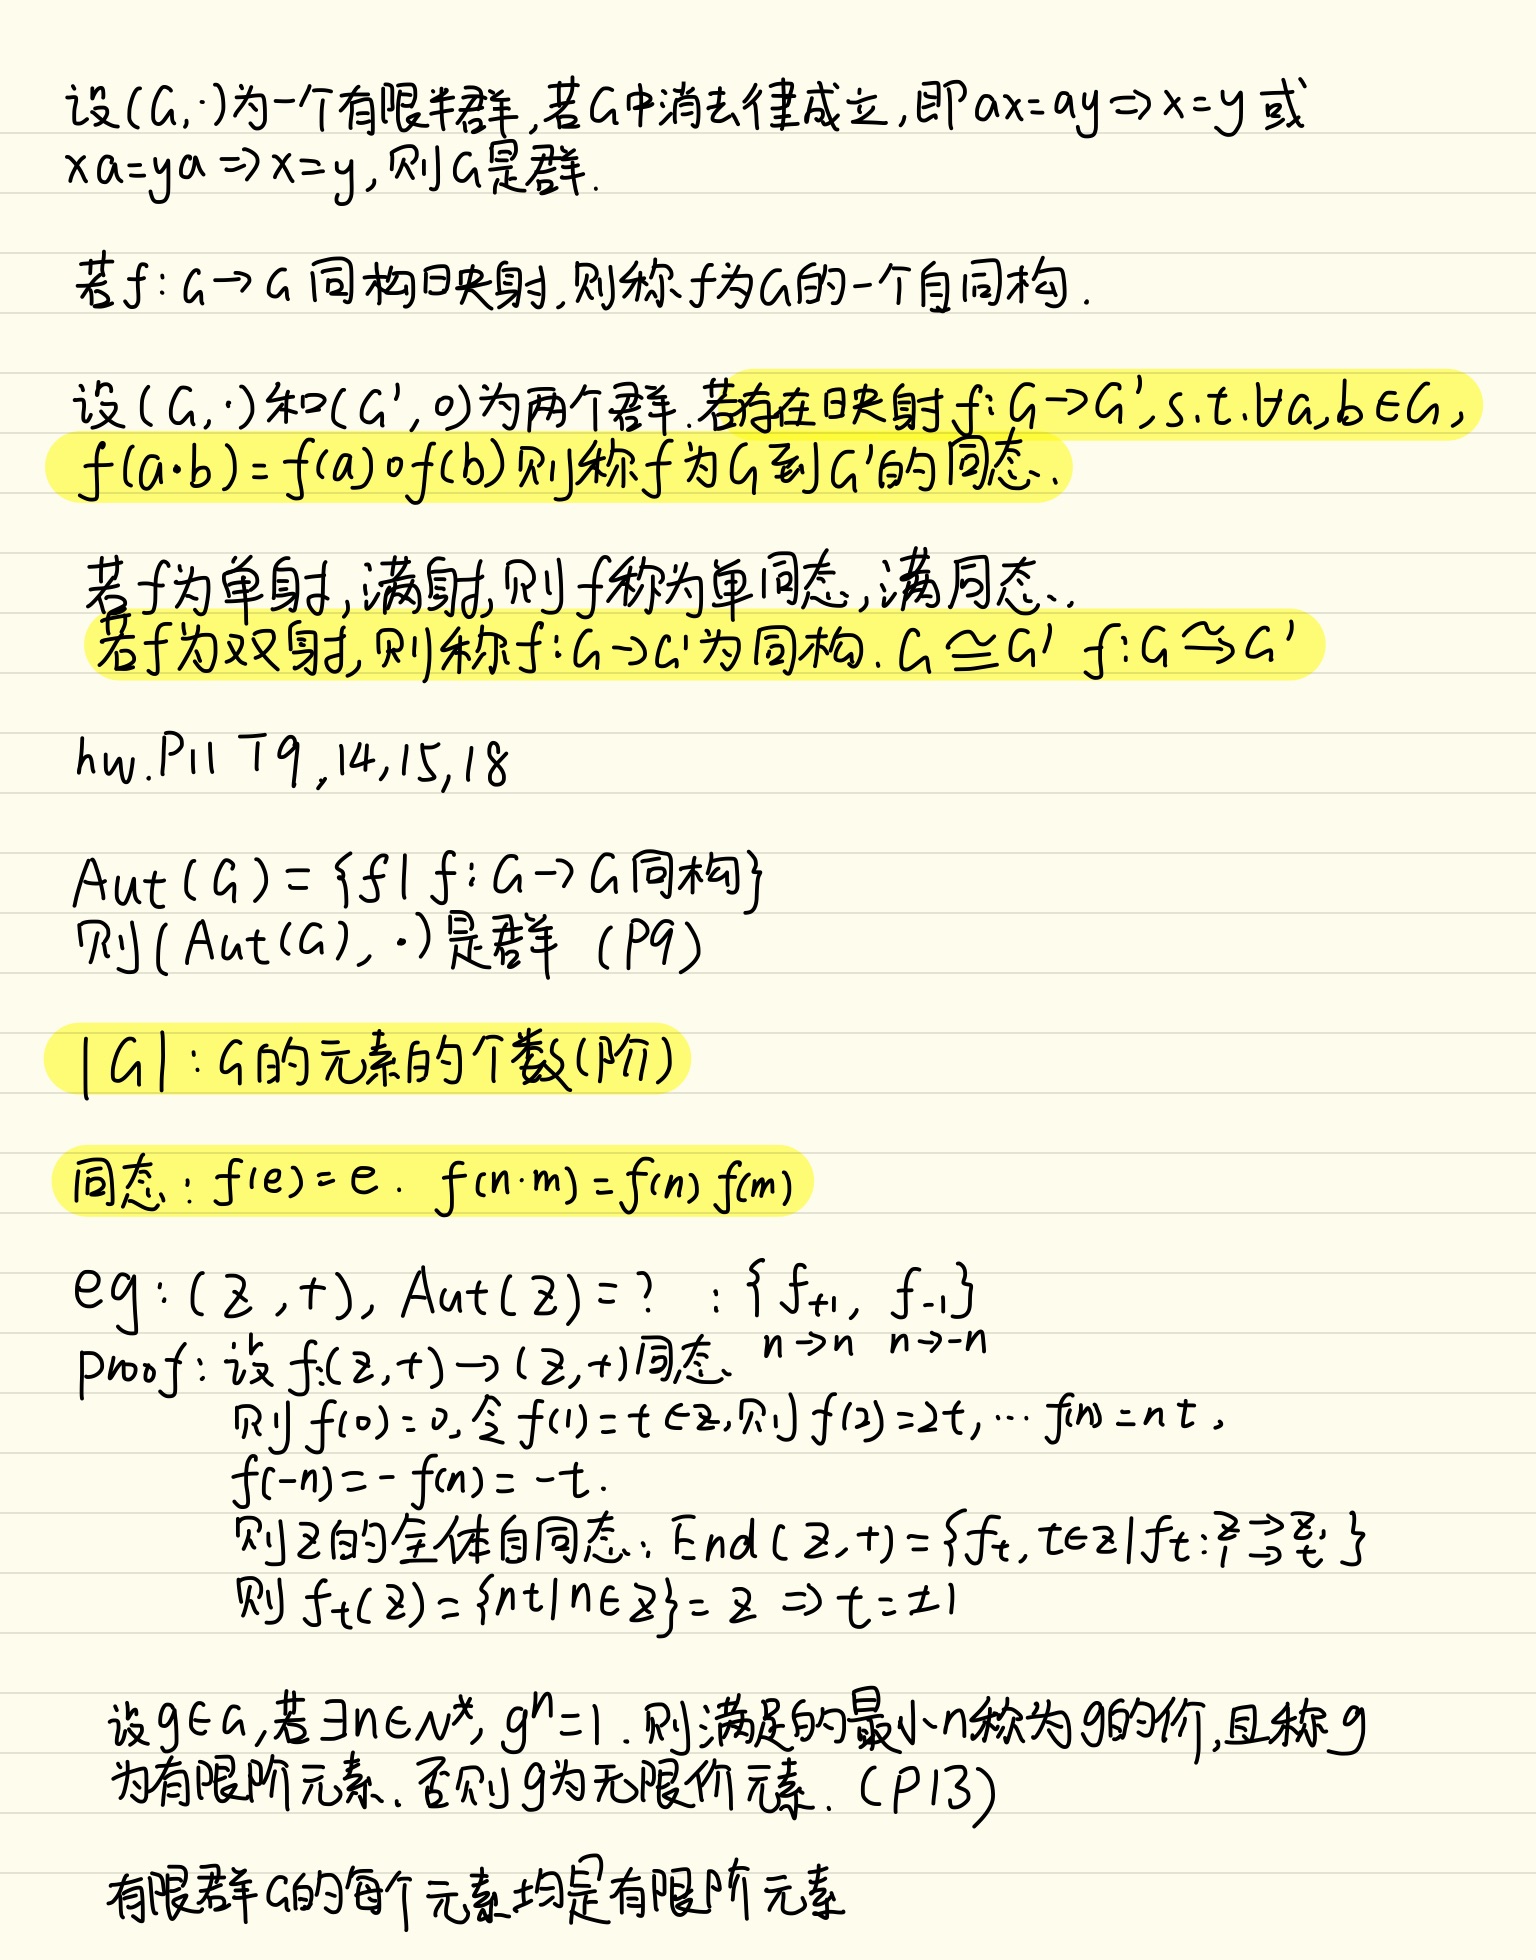 设(G,·)为一个有限半群,若G中消去律成立,即ax=ay⇒x=y或
xa=ya⇒x=y,则G是群.
若f:G→G同构映射,则称f为G的一个自同构.
设(G,·)和(G',o)为两个群.若存在映射f:G→G',s.t.∀a,b∈G,
f(a·b)=f(a)∘f(b)则称f为G到G'的同态.
若f为单射,满射,则f称为单同态,满同态.
若f为双射,则称f:G→G'为同构.G≅G' f:G⥲G'
hw.P11 T9,14,15,18
Aut(G)={f|f:G→G同构}
则(Aut(G),·)是群 (P9)
|G|:G的元素的个数(阶)
同态:f(e)=e. f(n·m)=f(n)f(m)
eg:(Z,+), Aut(Z)=? :{f₊₁, f₋₁}
n→n n→-n
proof:设f:(Z,+)→(Z,+)同态
则f(0)=0,令f(1)=t∈Z,则f(2)=2t,…f(n)=nt,
f(-n)=-f(n)=-t.
则Z的全体自同态:End(Z,+)={fₜ,t∈Z|fₜ:Z→Z, 1→t}
则fₜ(Z)={nt|n∈Z}=Z⇒t=±1
设g∈G,若∃n∈N*,gⁿ=1.则满足的最小n称为g的价,且称g
为有限阶元素.否则g为无限价元素.(P13)
有限群G的每个元素均是有限阶元素